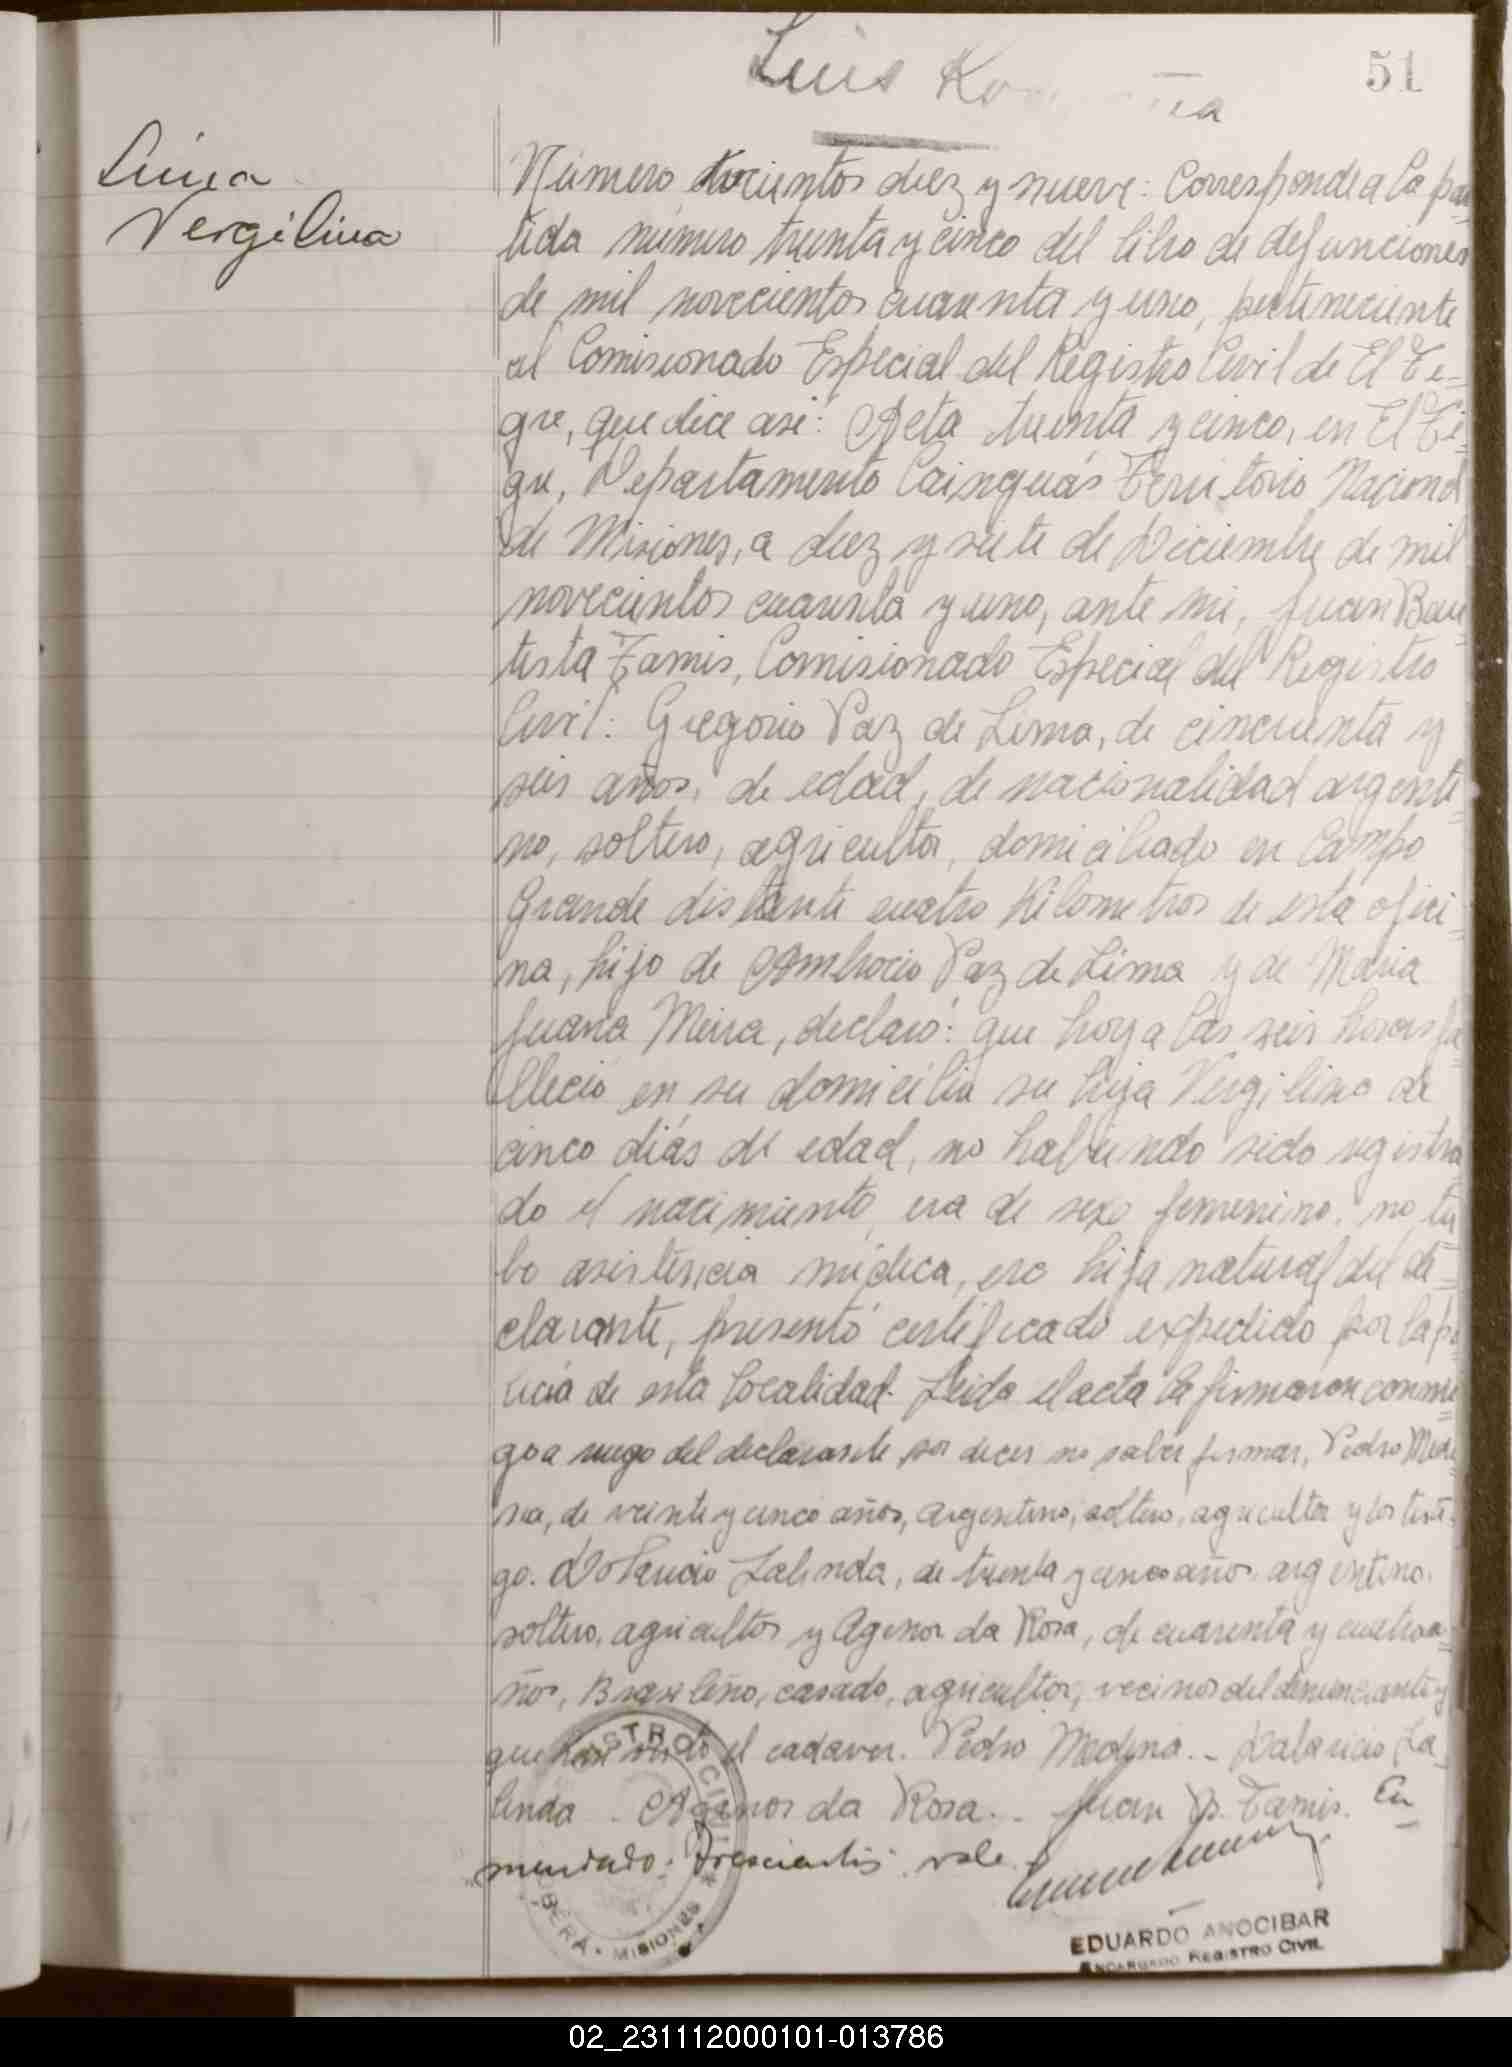 Luis
51
Linea
Vergilina
Número trecientos diez y nueve: Corresponde a la par-
tida número treinta y cinco del libro de defunciones
de mil novecientos cuarenta y uno, perteneciente
al Comisionado Especial del Registro Civil de El Ti-
gre, que dice asi: Acta treinta y cinco, en El Ti-
gre, Departamento Cainguás Territorio Nacional
de Misiones, a diez y siete de Diciembre de mil
novecientos cuarenta y uno, ante mi, Juan Bau-
tista Tamis, Comisionado Especial del Registro
Civil: Gregorio Paz de Lima, de cincuenta y
seis años, de edad, de nacionalidad argenti-
no, soltero, agricultor, domiciliado en Campo
Grande distante cuatro Kilometros de esta ofici-
na, hijo de Ambrocio Paz de Lima y de Maria
Juana Meira, declaró: que hoy a las seis horas fa-
llecio en su domicilio su hija Vergilina de
cinco diás de edad, no habiendo sido registra-
do el nacimiento, era de sexo femenino, no tu-
bo asistencia médica, era hija natural del de-
clarante, presentó certificado expedido por la po-
licia de esta localidad. Leida el acta la firmaron conmi-
go a ruego del declarante por decir no saber firmar, Pedro Medi-
na, de veinte y cinco años, argentino, soltero, agricultor y los testi-
go. Lalinda, de treinta y cinco años argentino.
soltero, agricultor y Agenor da Rosa, de cuarenta y cuatro a-
ños, Brasileño, casado, agricultor, vecinos del denunciante y
que han visto el cadaver. Pedro Medina. - La-
linda - Agenor da Rosa. - Juan B. Tamis. En-
mendado: trescientos vale
REGISTRO CIVIL
OBERA · MISIONES
EDUARDO ANOCIBAR
ENCARGADO REGISTRO CIVIL
02_231112000101-013786